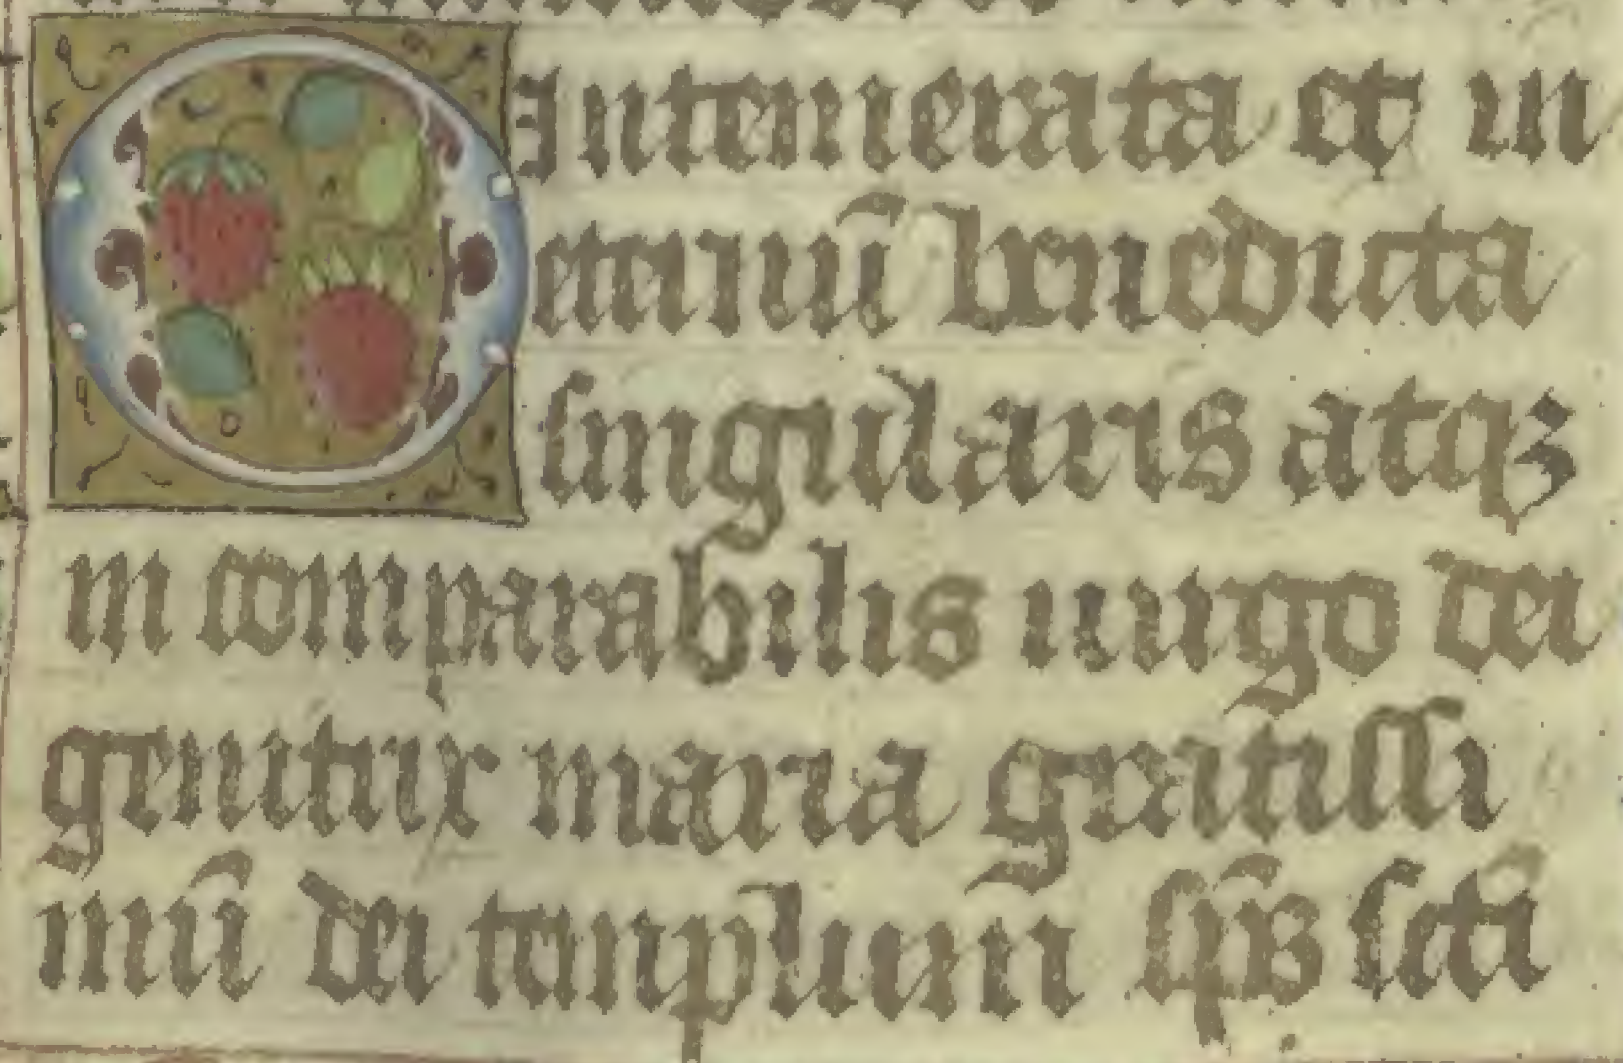 O Intemerata et in
eternū benedicta
singularis atqꝫ
in comparabilis uirgo dei
genitrix maria gratissi
mū dei templum sp̄s sc̄ti